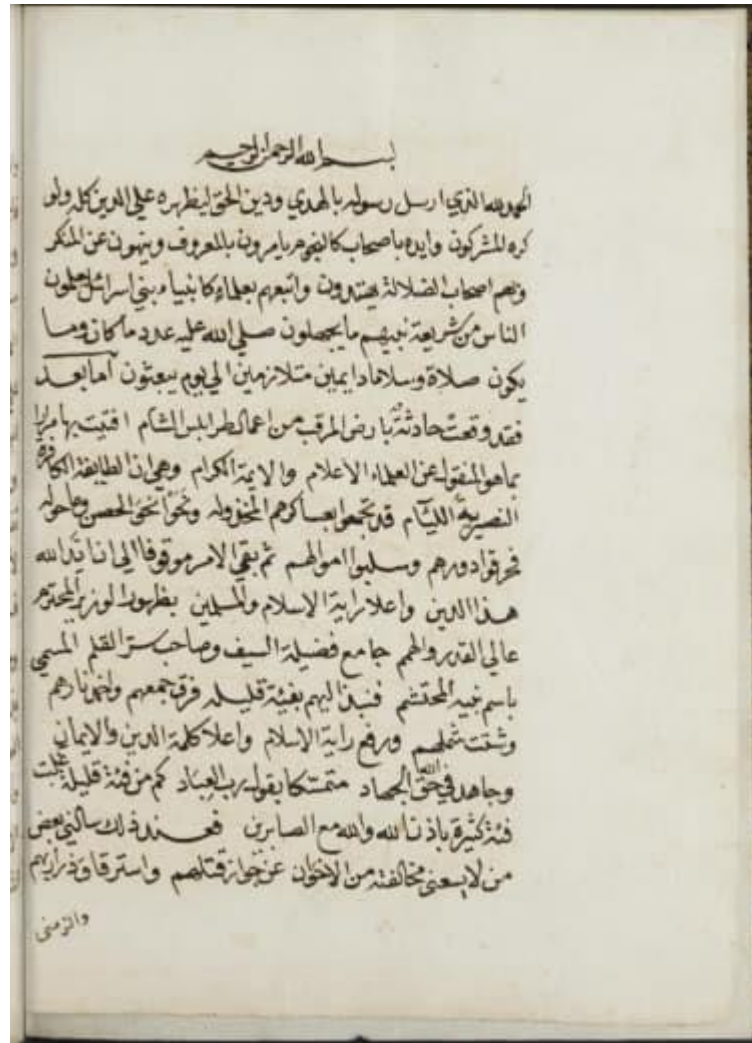 بسم الله الرحمن الرحيم
الحمد لله الذي ارسل رسوله بالهدي ودين الحق ليظهره علي الدين كله ولو
كره المشركون وايده باصحاب كالنجوم يامرون بالمعروف وينهون عن المنكر
وبهم اصحاب الضلالة يهتدون واتبعهم بعلماء كانبياء بني اسرائل يعلمون
الناس من شريعة نبيهم ما يجهلون صلي الله عليه عدد ما كان وما
يكون صلاة وسلاما دايمين متلازمين الي يوم يبعثون اما بعد
فقد وقعت حادثة بارض المرقب من اعمال طرابلس الشام افتيت بها مرارا
بما هو المنقول عن العلماء الاعلام والايمة الكرام وهي ان الطايفة الكافرة
النصيرية الليام قد تجمعوا بعساكرهم المخذوله ونحوا نحو الحصن وما حوله
فحرقوا دورهم وسلبوا اموالهم ثم بقي الامر موقوفا الي ان ايد الله
هذا الدين واعلا راية الاسلام والمسلمين بظهور الوزير المحترم
عالي القدر والهمم جامع فضيلة السيف وصاحب سر القلم المسمي
باسم نبيه المحتشم فنبذ اليهم بفية قليله فرق جمعهم واخمد نارهم
وشتت شملهم ورفع راية الاسلام واعلا كلمة الدين والايمان
وجاهد في الله حق الجهاد متمسكا بقول رب العباد كم من فئة قليلة غلبت
فئة كثيرة باذن الله والله مع الصابرين فعند ذلك سالني بعض
من لا يسعني مخالفته من الاخوان عن جواز قتلهم واسترقاق ذراريهم
والزمني